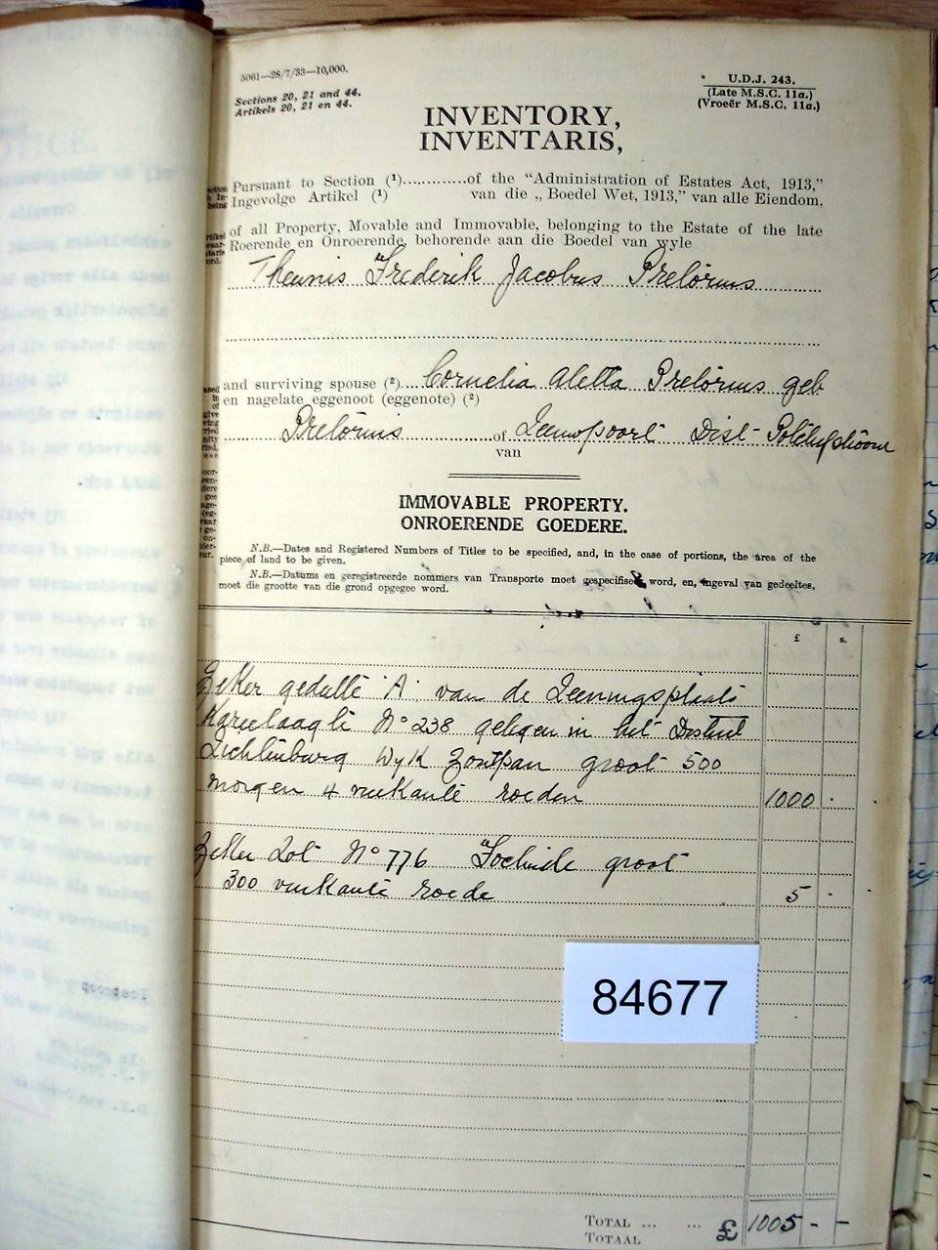 3061—28/7/33—10,000.
Sections 20, 21 and 44.
Artikels 20, 21 en 44.
U.D.J. 243.
(Late M.S.C. 11a.)
(Vroeër M.S.C. 11a.)
INVENTORY,
INVENTARIS,
Pursuant to Section (¹)............of the "Administration of Estates Act, 1913,"
Ingevolge Artikel (¹) van die „ Boedel Wet, 1913," van alle Eiendom,
of all Property, Movable and Immovable, belonging to the Estate of the late
Roerende en Onroerende, behorende aan die Boedel van wyle
Theunis Frederik Jacobus Pretorius
and surviving spouse (²) Cornelia Aletta Pretorius geb
en nagelate eggenoot (eggenote) (²)
Pretorius of Leeuwpoort Dist Potchefstroom
van
IMMOVABLE PROPERTY.
ONROERENDE GOEDERE.
N.B.—Dates and Registered Numbers of Titles to be specified, and, in the case of portions, the area of the
piece of land to be given.
N.B.—Datums en geregistreerde nommers van Transporte moet gespecifiseer word, en, ingeval van gedeeltes,
moet die grootte van die grond opgegee word.
£ s.
Zeker gedelte 'A' van de Leeningsplaats
Kareelaagte No 238 gelegen in het District
Lichtenburg Wyk Zoutpan groot 500
morgen 4 vierkante roeden 1000 -
Zeker Lot No 776 groot
300 vierkante roede 5 -
84677
TOTAL ... ... £ 1005 - -
TOTAAL